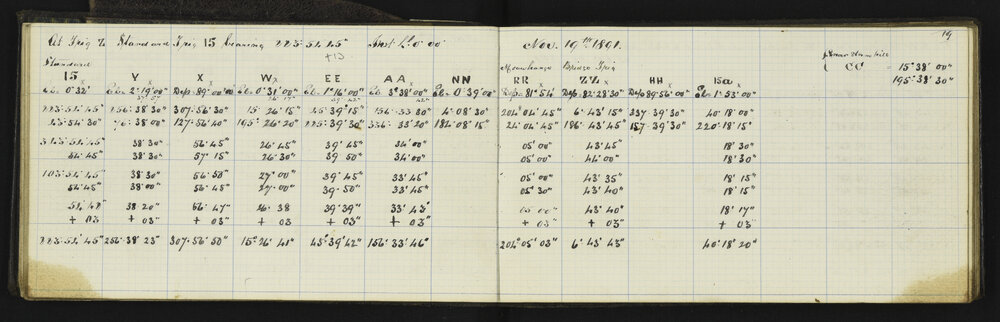 19
At Trig Z Standard Trig 15 bearing 223° 54' 45" Inst Lt 0° 00' Nov. 19th 1891.
+13
Standard Mowhanga Brieze Trig
CC = 15° 38' 00"
195° 38' 30"
15 Y X W EE AA NN RR ZZ HH 15a
Elv 0° 32' Elv 2° 19' 00" Dep 89° 00' 00 Elv 0° 31' 00" Elv 1° 14' 00" Elv 3° 38' 00" Elv 0° 39' 00 Dep 81° 54' Dep 82° 28' 30" Dep 89° 56' 00" Elv 1° 53' 00"
223° 54' 45" 256° 38' 30" 307° 56' 30" 15° 26' 15" 45° 39' 15" 156° 33' 30" 4° 08' 30" 204° 04' 45" 6° 43' 15" 337° 39' 30" 40° 18' 00"
43° 54' 30" 76° 38' 00" 127° 56' 40" 195° 26' 20" 225° 39' 30" 336° 33' 20" 184° 08' 15" 24° 04' 45" 186° 43' 45" 157° 39' 30" 220° 18' 15"
313° 54' 45" 38' 30" 56' 45" 26' 45" 39' 45" 34' 00" 05' 00" 43' 45" 18' 30"
54' 45" 38' 30" 57' 15" 26' 30" 39' 50" 34' 00" 05' 00" 44' 00" 18' 30"
103° 54' 45" 38' 30" 56' 50" 27' 00" 39' 45" 33' 45" 05' 00" 43' 35" 18' 15"
54' 45" 38' 00" 56' 45" 27' 00" 39' 50" 33' 45" 05' 30" 43' 40" 18' 15"
54' 42" 38' 20" 56' 47" 26' 38 39' 39" 33' 43" 05' 00" 43' 40" 18' 17"
+ 03 + 03" + 03" + 03 + 03" + 03" + 03" + 03" + 03"
223° 54' 45" 256° 38' 23" 307° 56' 50" 15° 26' 41" 45° 39' 42" 156° 33' 46" 204° 05' 03" 6° 43' 43" 40° 18' 20"